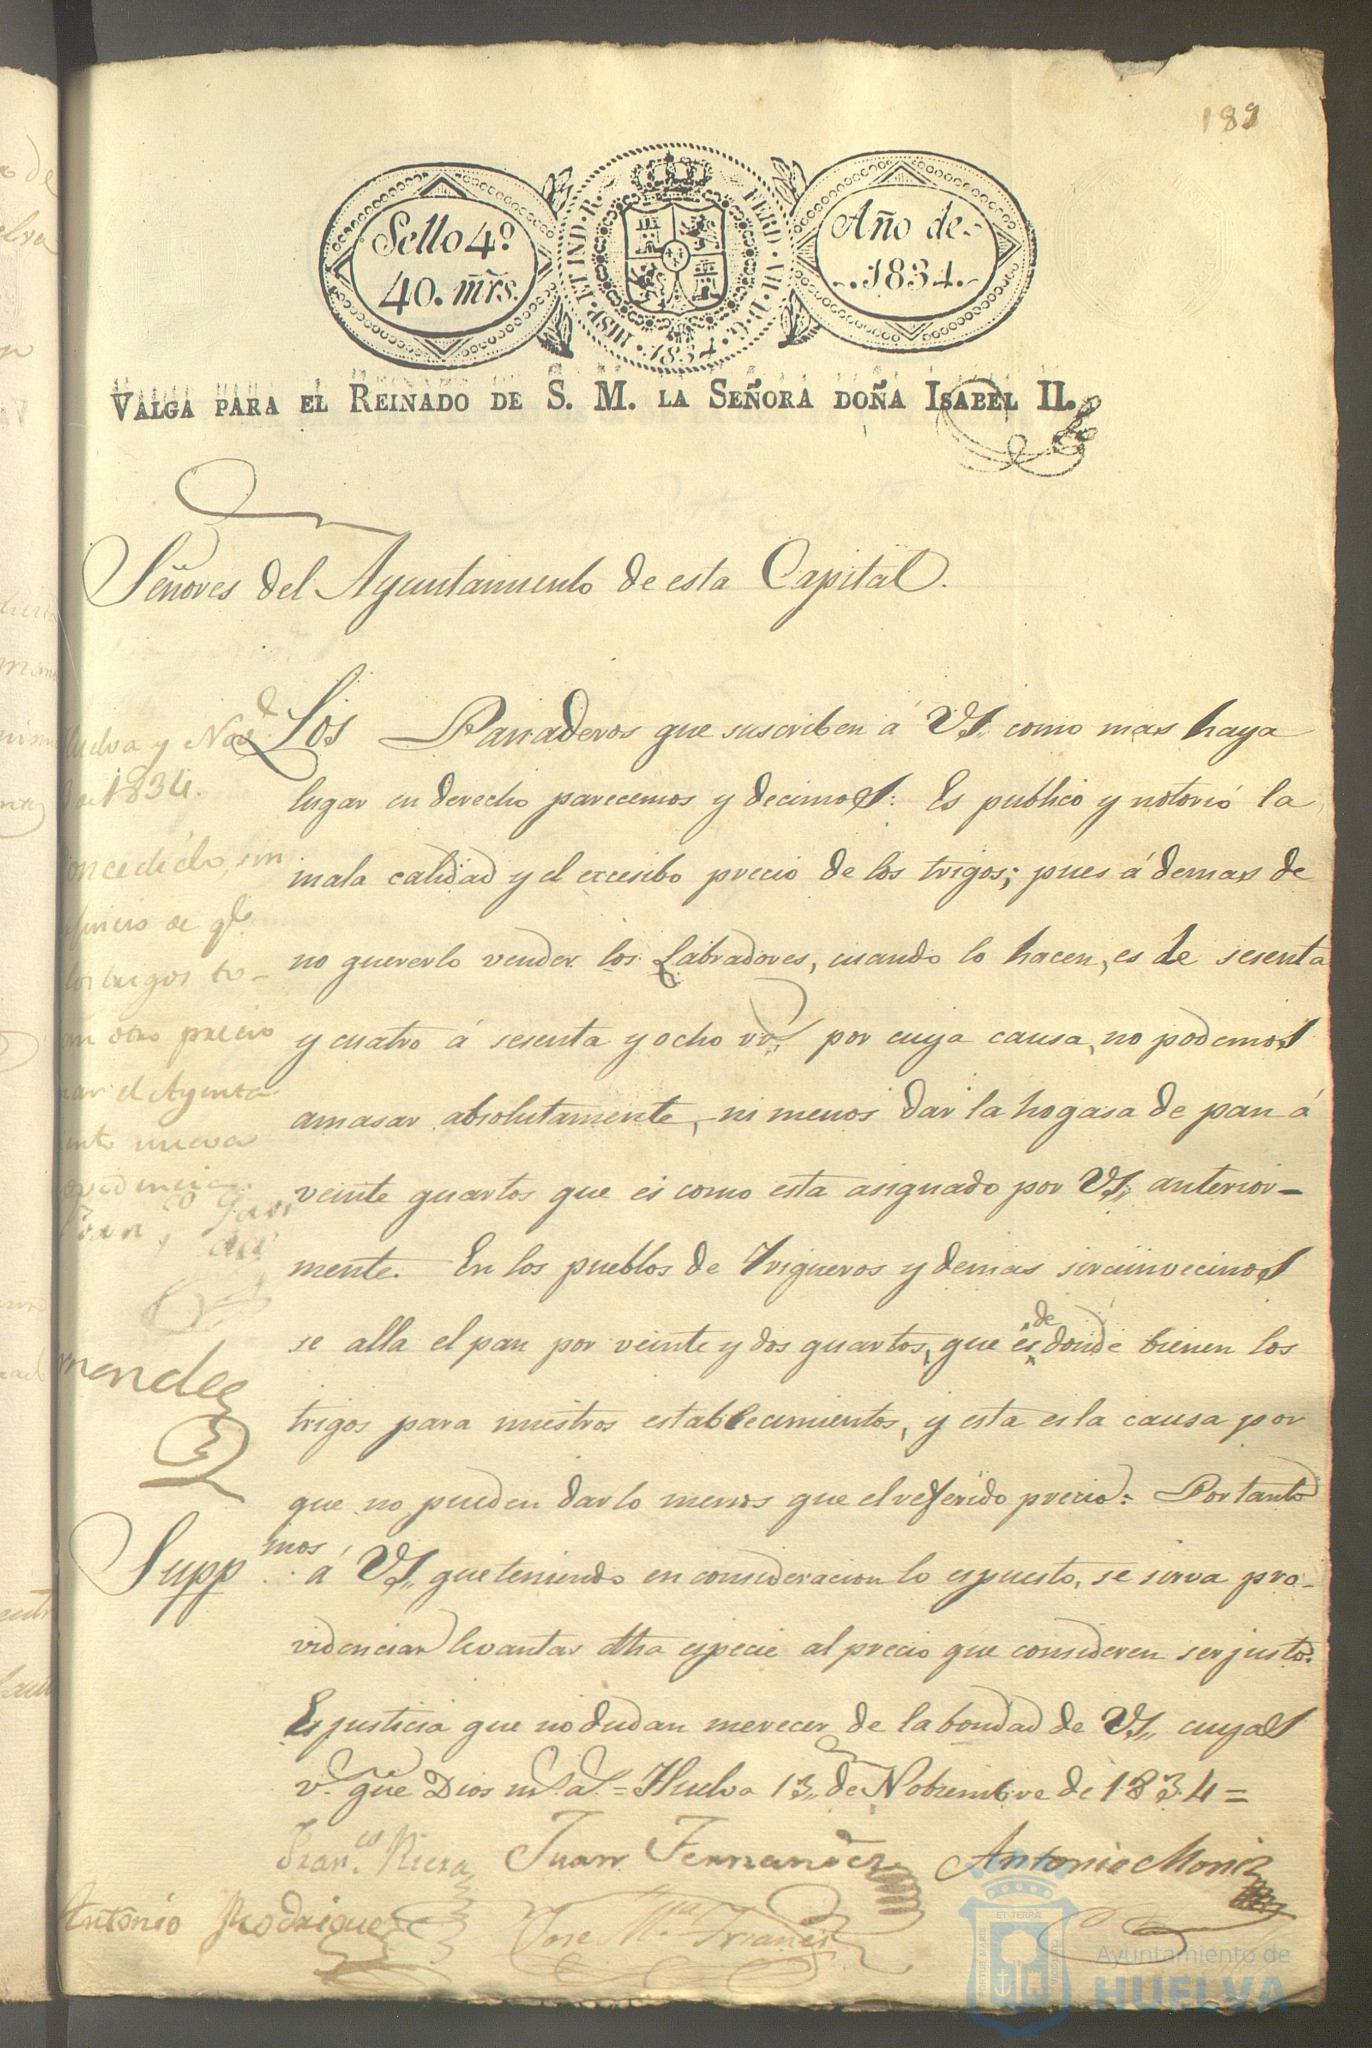 189
Sello 4º
40. mrs.
HISP. ET IND. R. FERD. VII. D. G. 1834.
Año de
1834.
VALGA PARA EL REINADO DE S. M. LA SEÑORA DOÑA ISABEL II.
Señores del Ayuntamiento de esta Capital.
Los Panaderos que suscriben á VS. como mas haya
lugar en derecho parecemos y decimos: Es publico y notorio la
mala calidad y el excesibo precio de los trigos; pues á demas de
no quererlo vender los Labradores, cuando lo hacen, es de sesenta
y cuatro á sesenta y ocho rs. por cuya causa, no podemos
amasar absolutamente, ni menos dar la hogasa de pan á
veinte quartos que es como esta asignado por VS. anterior-
mente. En los pueblos de Trigueros y demas sircunvecinos
se alla el pan por veinte y dos quartos, que es de donde bienen los
trigos para nuestros establecimientos, y esta es la causa por
que no pueden darlo menos que el referido precio: Por tanto
Suppmos á VS. que teniendo en consideracion lo espuesto, se sirva pro-
videnciar levantar dha especie al precio que consideren ser justo.
Es justicia que no dudan merecer de la bondad de VS. cuyas
vs. gue Dios ms. as. = Huelva 13,, de Nobiembre de 1834 =
Franco. Riera Juan Fernandez Antonio Moniz
Antonio Rodriguez Jose Ma. Trianes
uelva y Nove.
de 1834.
oncedido, sin
juicio de qe.
los trigos to-
an otro precio
ar el Ayunta
nto nueva
ovidencia.
mendez
Ayuntamiento de
HUELVA